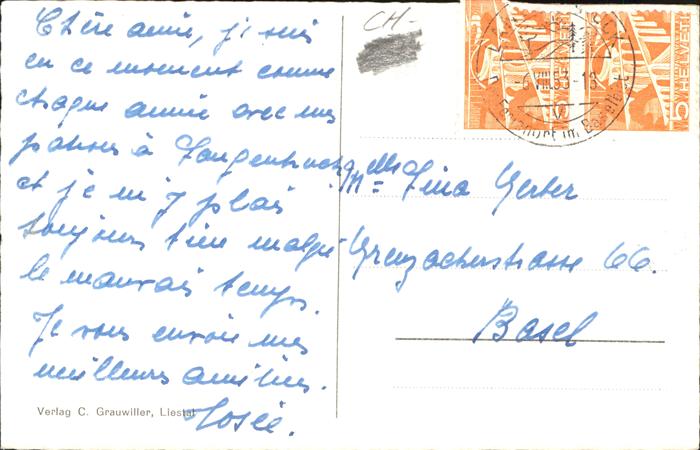 Chère amie, je suis
en ce moment comme
chaque année avec mes
patrons à Langenbruck
et je m'y plais
toujours bien malgré
le mauvais temps.
Je vous envoie mes
meilleurs amitiés.
Josée.
Verlag C. Grauwiller, Liestal
CH-
HELVETIA
5
LANGENBRUCK
-6.VIII.53-18
Luftkurort im Baselbiet
Mlle Tina Gerber
Grenzacherstrasse 66.
Basel